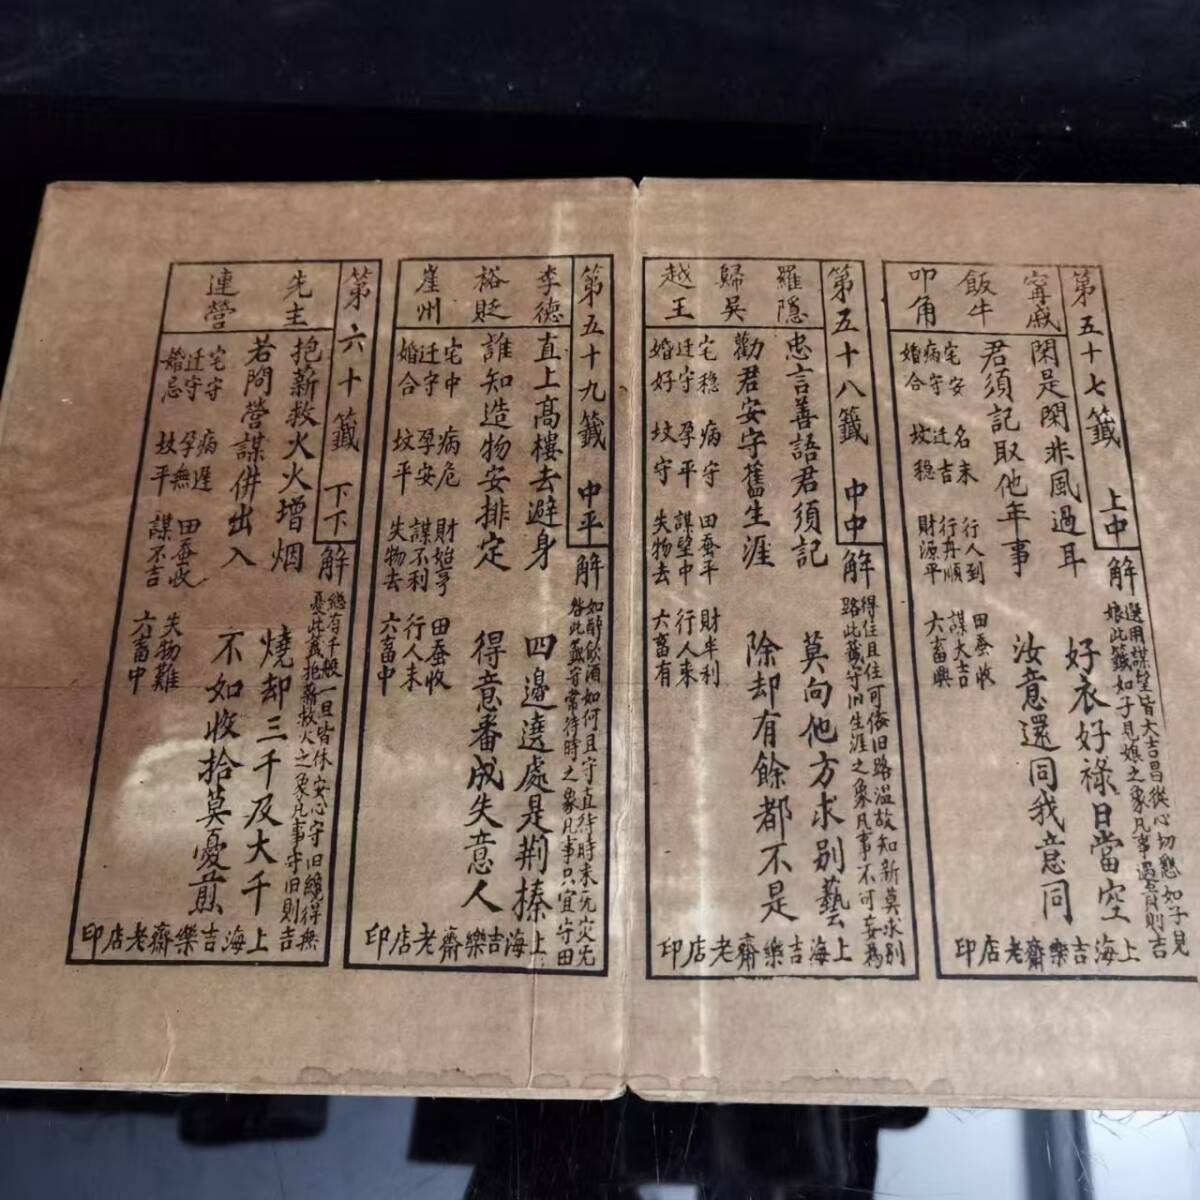 第五十七籤 上中
解
選用謀望皆大吉昌從心切懇如子見
娘此籤如子見娘之象凡事遇貴則吉
甯戚
飯牛
叩角
閑是閑非風過耳 好衣好祿日當空
君須記取他年事 汝意還同我意同
宅安 名未 行人到 田蚕收
病守 迁吉 行舟順 謀大吉
婚合 坟稳 財源平 六畜興
上海吉樂齋老店印
第五十八籤 中中
解
得住且住可倦旧路溫故知新莫求別
路此籤守旧生涯之象凡事不可妄為
羅隱
歸吳
越王
忠言善語君須記 莫向他方求別藝
勸君安守舊生涯 除却有餘都不是
宅稳 病守 田蚕平 財半利
迁守 孕平 謀望中 行人未
婚好 坟守 失物去 六畜有
上海吉樂齋老店印
第五十九籤 中平
解
如醉飲酒如何且守直待時未可灾
咎此籤守常待時之象凡事只宜守旧
李德
裕貶
崖州
直上高樓去避身 四邊遶處是荆榛
誰知造物安排定 得意番成失意人
宅中 病危 財始亨 田蚕收
迁守 孕安 謀不利 行人未
婚合 坟平 失物去 六畜中
上海吉樂齋老店印
第六十籤 下下
解
總有千般一旦皆休安心守旧纔得無
憂此籤抱薪救火之象凡事守旧則吉
先主
連營
抱薪救火火增烟 燒却三千及大千
若問營謀併出入 不如收拾莫憂煎
宅守 病遅 田蚕收 失物難
迁守 孕無 謀不吉 六畜中
婚忌 坟平
上海吉樂齋老店印